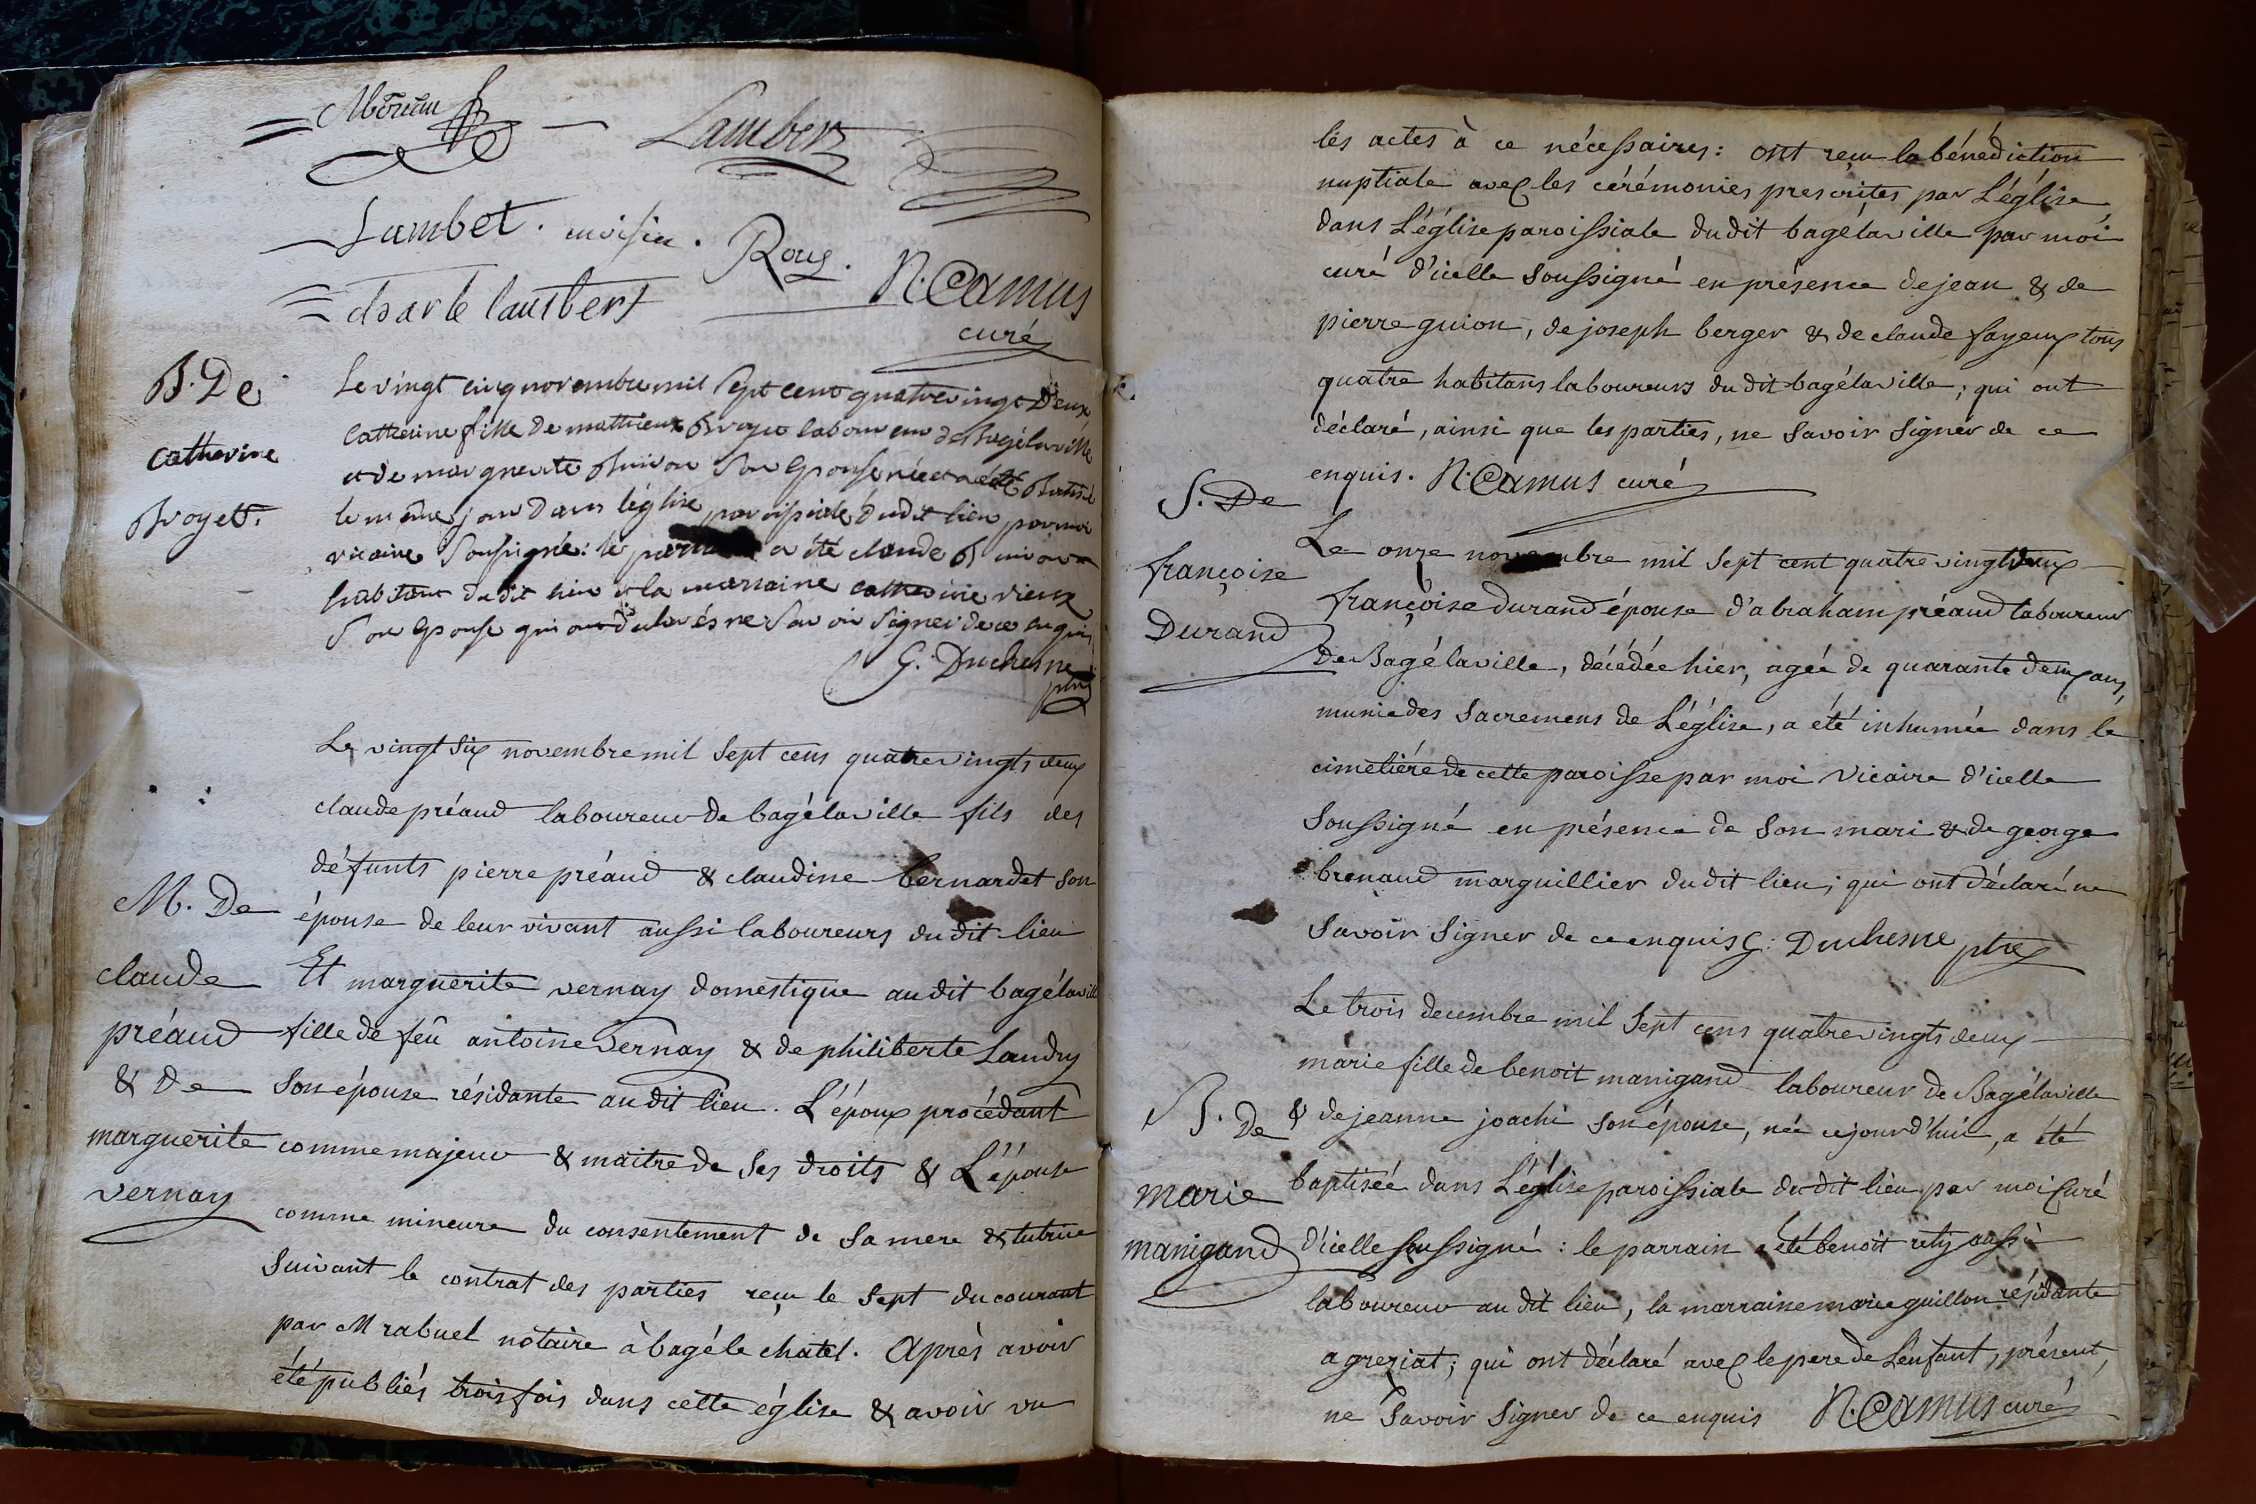 Moreau
Lambert
Lambet . moisin . Roux .
charle lambert
N. Camus
curé
B. De
catherine
Broyet.
Le vingt cinq novembre mil sept cent quatre vingt Deux
Catherine fille De mathieux Broyet laboureur de Bagélaville
et de marguerite Buivon son Epouse née et a été Batisé
le même jour Dans léglise paroissiale dudit lieu par moi
vicaire soussigné: le parrain a été claude Buivon
habitant dudit lieu et la marraine catherine vieux
son Epouse qui ont déclarés ne savoir signer de ce enquis
G. Duchesne
ptre
M. De
claude
préaud
& De
marguerite
vernay
Le vingt six novembre mil sept cens quatre vingts deux
claude préaud laboureur de bagélaville fils des
défunts pierre préaud & claudine bernardet son
épouse de leur vivant aussi laboureurs dudit lieu
Et marguerite vernay domestique audit bagélaville
fille de feû antoine vernay & de philiberte Landry
son épouse résidante audit lieu. L'époux procédant
comme majeur & maitre de ses droits & L'épouse
comme mineure du consentement de sa mere & tutrice
suivant le contrat des parties reçu le sept du courant
par M rabuel notaire à bagé le chatel. Après avoir
été publiés trois fois dans cette église & avoir vu
les actes à ce nécessaires: ont reçu la bénédiction
nuptiale avec les cérémonies prescrites par L'église
dans L'église paroissiale dudit bagélaville par moi
curé d'icelle soussigné en présence de jean & de
pierre guion, de joseph berger & de claude fayeux tous
quatre habitans laboureurs dudit bagélaville; qui ont
déclaré, ainsi que les parties, ne savoir signer de ce
enquis. N. Camus curé
S. De
françoise
Durand
Le onze novembre mil sept cent quatre vingt deux
françoise durand épouse d'abraham préaud laboureur
de Bagélaville, décédée hier, agée de quarante deux ans,
munie des sacremens de L'église, a été inhumée dans le
cimetière de cette paroisse par moi vicaire d'icelle
soussigné en présence de son mari & de george
brenaud marguillier dudit lieu; qui ont déclaré ne
savoir signer de ce enquis G: Duchesne ptre
B. De
marie
manigand
Le trois decembre mil sept cens quatre vingts deux
marie fille de benoit manigand laboureur de Bagélaville
& de jeanne joachi son épouse, née cejourd'hui, a été
baptisée dans L'église paroissiale dudit lieu par moi Curé
d'icelle soussigné : le parrain a été benoit rety aussi
laboureur audit lieu, la marraine marie guillon résidante
a greziat; qui ont déclaré avec le pere de L'enfant, présent,
ne savoir signer de ce enquis N. Camus curé